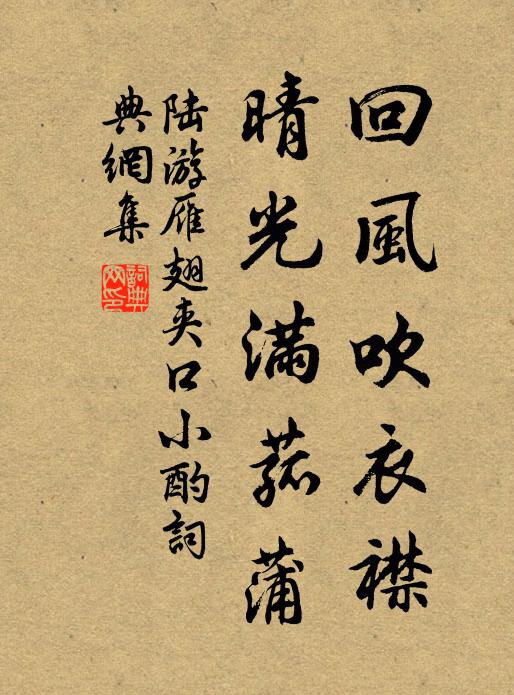 回風吹衣襟
晴光滿菰蒲
陸游雁翅夾口小酌詞
典網集
詞典網印